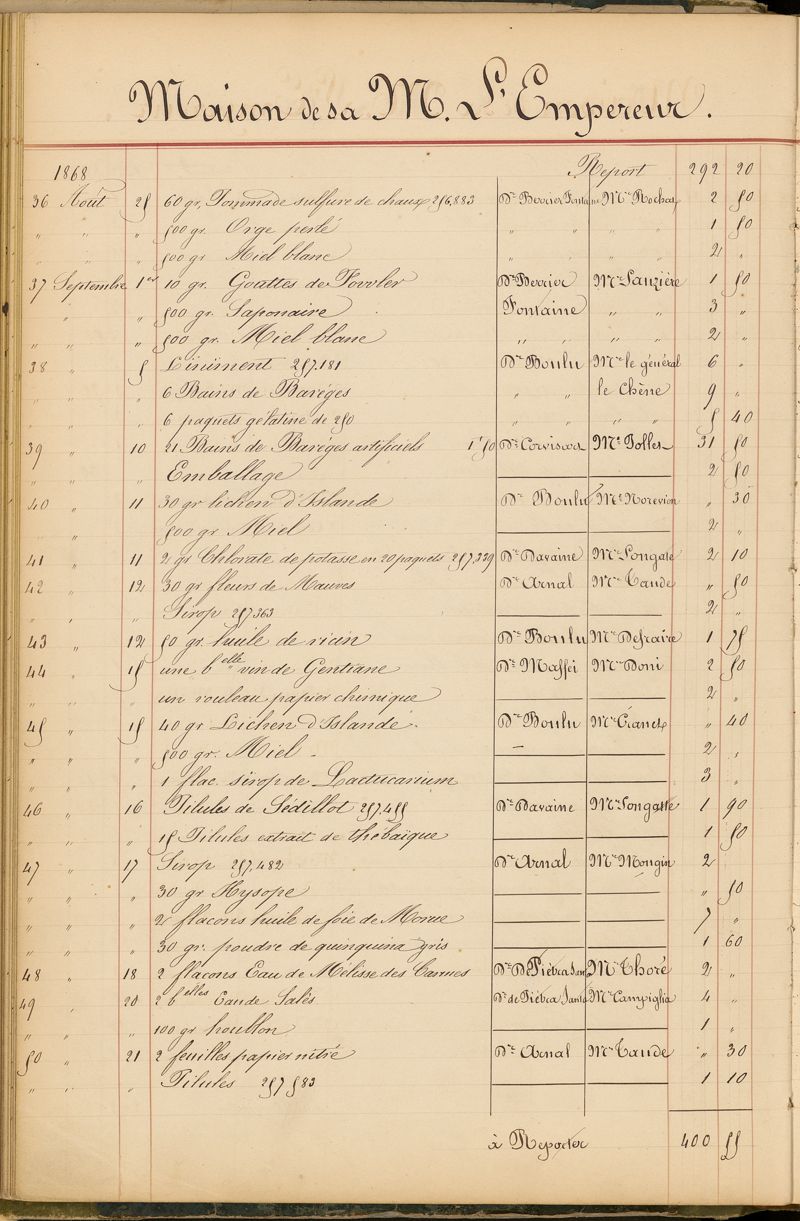 Maison de sa M. L' Empereur.
1868 Report 292 20
36 Août 25 60 gr. Pommade sulfure de chaux 256,883 Dr Berrier Fontaine Mme Rochas 2 50
" " " 500 gr. Orge perlé " " " " 1 50
" " " 500 gr. Miel blanc 2 "
37 Septembre 1er 10 gr. Gouttes de Fowler Dr Berrier Mme Lauzière 1 50
" " 500 gr. Saponaire Fontaine " " 3 "
" " " 500 gr. Miel blanc " " " " 2 "
38 " 5 Liniment 257.181 Dr Boulu Mme le général 6 "
" " " 6 Bains de Barèges " " le Chêne 9 "
" " " 6 paquets gélatine de 250 " " " " 5 40
39 " 10 21 Bains de Barèges artificiels 1f50 Dr Corvisart Mr Jolles 31 50
" " " Emballage 2 50
40 " 11 30 gr lichen d'Islande Dr Boulu Mr Norevion " 30
" 500 gr Miel 2 "
41 " 11 2 gr Chlorate de potasse en 20 paquets 257,339 Dr Davaine Mme Longate 2 10
42 " 12 30 gr fleurs de Mauves Dr Arnal Mme Taude " 50
" " " Sirop 257363 2 "
43 " 12 50 gr. huile de ricin Dr Boulu Mme Defraire 1 75
44 " 15 une belle vin de Gentiane Dr Maffei Mme Doni 2 50
" " " un rouleau papier chimique 2 "
45 " 15 40 gr Lichen d'Islande. Dr Boulu " 40
" " " 500 gr. Miel 2 "
" " " 1 flac. sirop de Lactucarium 3 "
46 " 16 Pilules de Sédillot 257,455 Dr Davaine Mme Longatte 1 90
" " " 15 Pilules extrait de thébaïque 1 50
47 " 17 Sirop 257,482 Dr Arnal Mr Mongin 2
" " " 30 gr. Hysope " 50
" " " 2 flacons huile de foie de Morue 7 "
" " " 30 gr. poudre de quinquina gris 1 60
48 " 18 2 flacons Eau de Mélisse des Carmes Dr De Piétra Santa Mr Thoré 2 "
49 " 20 2 belles Eau de Salès Dr de Piétra Santa Mme Campiglia 4 "
" " " 100 gr houblon 1 "
50 " 21 2 feuilles papier nitré Dr Arnal Mme Taude " 30
" " " Pilules 257583 1 10
à Reporter 400 55